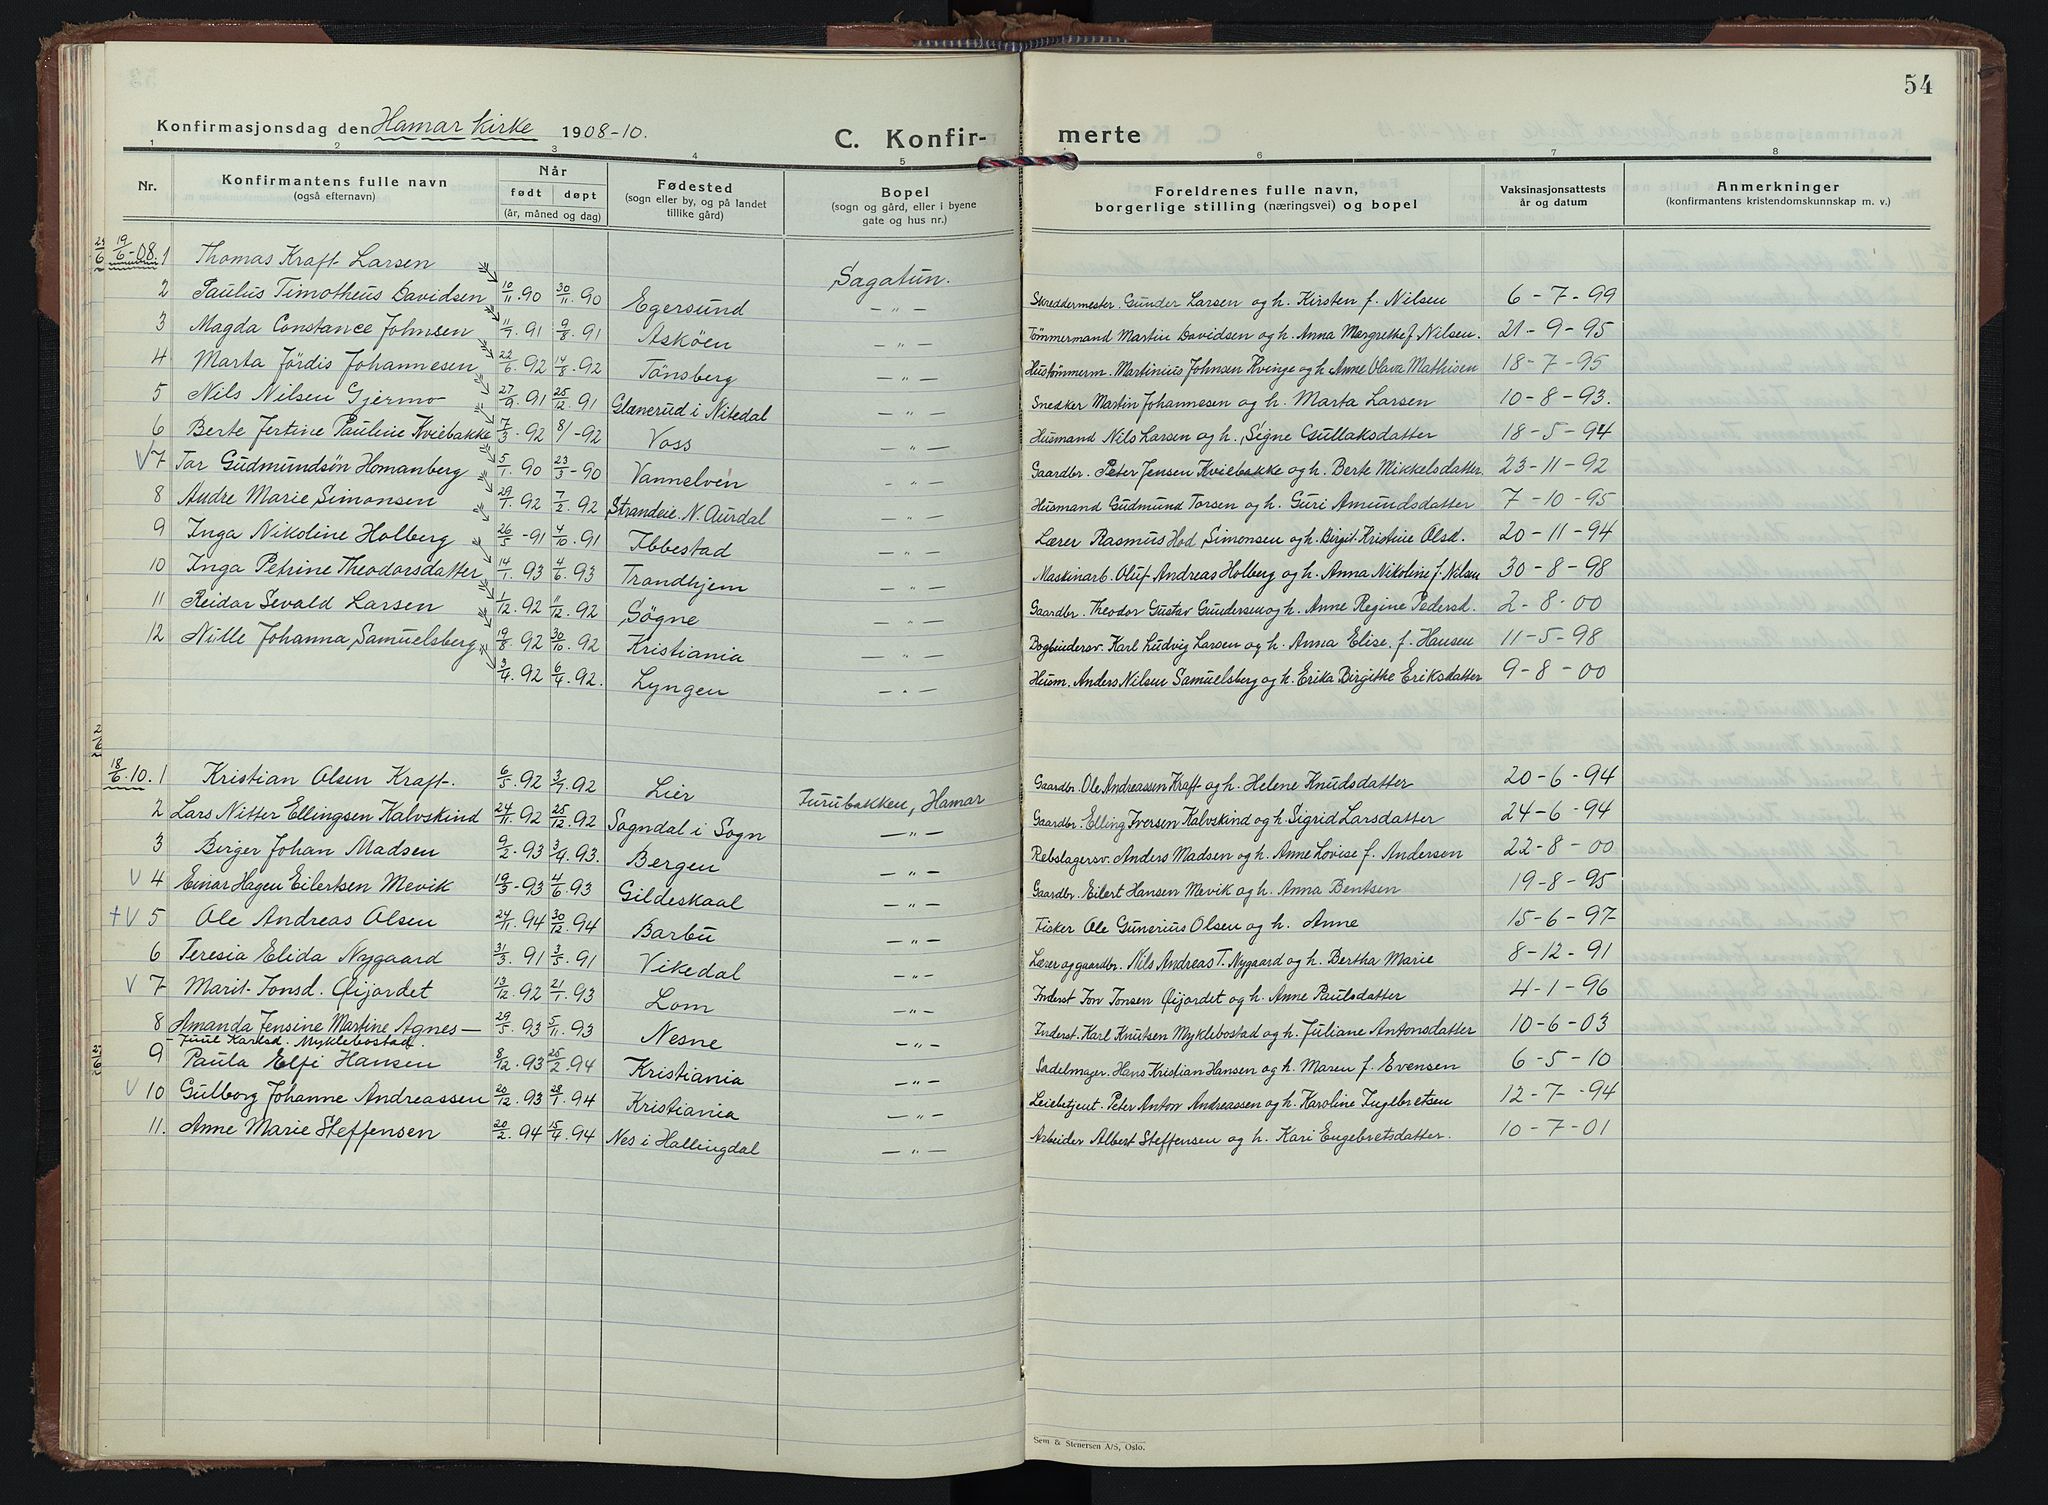 54
Konfirmasjonsdag den Hamar kirke 1908-10.
C. Konfir-
merte
1 2 3 4 5 6 7 8
Nr.
Konfirmantens fulle navn
(også efternavn)
Når
født døpt
(år, måned og dag)
Fødested
(sogn eller by, og på landet
tillike gård)
Bopel
(sogn og gård, eller i byene
gate og hus nr.)
Foreldrenes fulle navn,
borgerlige stilling (næringsvei) og bopel
Vaksinasjonsattests
år og datum
Anmerkninger
(konfirmantens kristendomskunnskap m. v.)
19/6-08. 1 Thomas Kraft Larsen 10/11.90 30/11.90 Egersund Sagatun. Skreddermester. Gunder Larsen og h. Kirsten f. Nilsen 6-7-99
2 Paulus Timotheus Davidsen 11/7.91 9/8.91 Asköen —"— Tømmermand Martin Davidsen og h. Anna Margrethe f. Nilsen. 21-9-95
3 Magda Constance Johnsen 22/6.92 14/8.92 Tönsberg —"— Hustømmerm. Martinius Johnsen Kvinge og h. Anne Olava Mathisen 18-7-95
4 Marta Jördis Johannesen 27/9.91 25/12.91 Glanerud i Nitedal —"— Snedker Martin Johannesen og h. Marta Larsen 10-8-93.
5 Nils Nilsen Gjermo 7/3.92 8/-92 Voss —"— Husmand Nils Larsen og h. Signe Gullaksdatter 18-5-94
6 Berte Jertine Pauline Kviebakke 5/1.90 23/3-90 Vannelven —"— Gaardbr. Peter Jensen Kviebakke og h. Berte Mikkelsdatter 23-11-92
V 7 Tor Gudmundsön Homanberg 29/1.92 7/2.92 Strandeie. N. Aurdal —"— Husmand Gudmund Torsen og h. Guri Amundsdatter 7-10-95
8 Andre Marie Simonsen 26/5-91 4/10.91 Ibbestad —"— Lærer Rasmus Hod. Simonsen og h. Birgit Kristine Olsd. 20-11-94
9 Inga Nikoline Holberg 14/1.93 4/6.93 Trondhjem —"— Maskinarb. Oluf Andreas Holberg og h. Anna Nikoline f. Nilsen 30-8-98
10 Inga Petrine Theodorsdatter 1/12.92 11/12.92 Søgne —"— Gaardbr. Theodor Gustav Gundersen og h. Anne Regine Pedersd. 2-8-00
11 Reidar Sevald Larsen 19/8.92 30/10.92 Kristiania —"— Bogbindersv. Karl Ludvig Larsen og h. Anna Elise f. Hansen 11-5-98
12 Nille Johanna Samuelsberg 3/4.92 6/4.92. Lyngen —"— Husm. Anders Nilsen Samuelsberg og h. Erika Birgithe Eriksdatter 9-8-00
18/6.10. 1 Kristian Olsen Kraft. 6/5.92 3/7.92 Lier Furubakken, Hamar Gaardbr. Ole Andreassen Kraft og h. Helene Knudsdatter 20-6-94
2 Lars Nitter Ellingsen Kalvskind 24/11.92 25/12.92 Sogndal i Sogn —"— Gaardbr. Elling Iversen Kalvskind og h. Sigrid Larsdatter 24-6-94
3 Birger Johan Madsen 9/2.93 3/4.93. Bergen —"— Rebslagersv. Anders Madsen og h. Anne Lovise f. Andersen 22-8-00
V 4 Einar Hagen Eilertsen Mevik 19/3-93 4/6.93 Gildeskaal —"— Gaardbr. Eilert Hansen Mevik og h. Anna Bentsen 19-8-95
† V 5 Ole Andreas Olsen 24/11.94 30/12.94 Barbu —"— Fisker Ole Gunerius Olsen og h. Anne 15-6-97
6 Teresia Elida Nygaard 31/3.91 3/5.91 Vikedal —"— Lærer og gaardbr. Nils Andreas T. Nygaard og h. Bertha Marie 8-12-91
V 7 Marit Jonsd. Öijordet 13/12.92 21/1.93 Lom —"— Inderst Jon Jonsen Öijordet og h. Anne Paulsdatter 4-1-96
8 Amanda Jensine Martine Agnes — 29/5.93 5/11.93 Nesne —"— Inderst. Karl Knutsen Myklebostad og h. Juliane Antonsdatter 10-6-03
- Juul Karlsd. Myklebostad.
9 Paula Elfi Hansen 8/12.93 25/2.94 Kristiania —"— Sadelmager. Hans Kristian Hansen og h. Maren f. Evensen 6-5-10
V 10 Gulborg Johanne Andreassen 20/12.93 28/1.94 Kristiania —"— Leiebetjent. Peter Anton Andreassen og h. Karoline Ingebretsen 12-7-94
11. Anne Marie Steffensen 20/2.94 15/4.94 Nes i Hallingdal —"— Arbeider Albert Steffensen og h. Kari Engebretsdatter. 10-7-01
Sem & Stenersen A/S, Oslo.